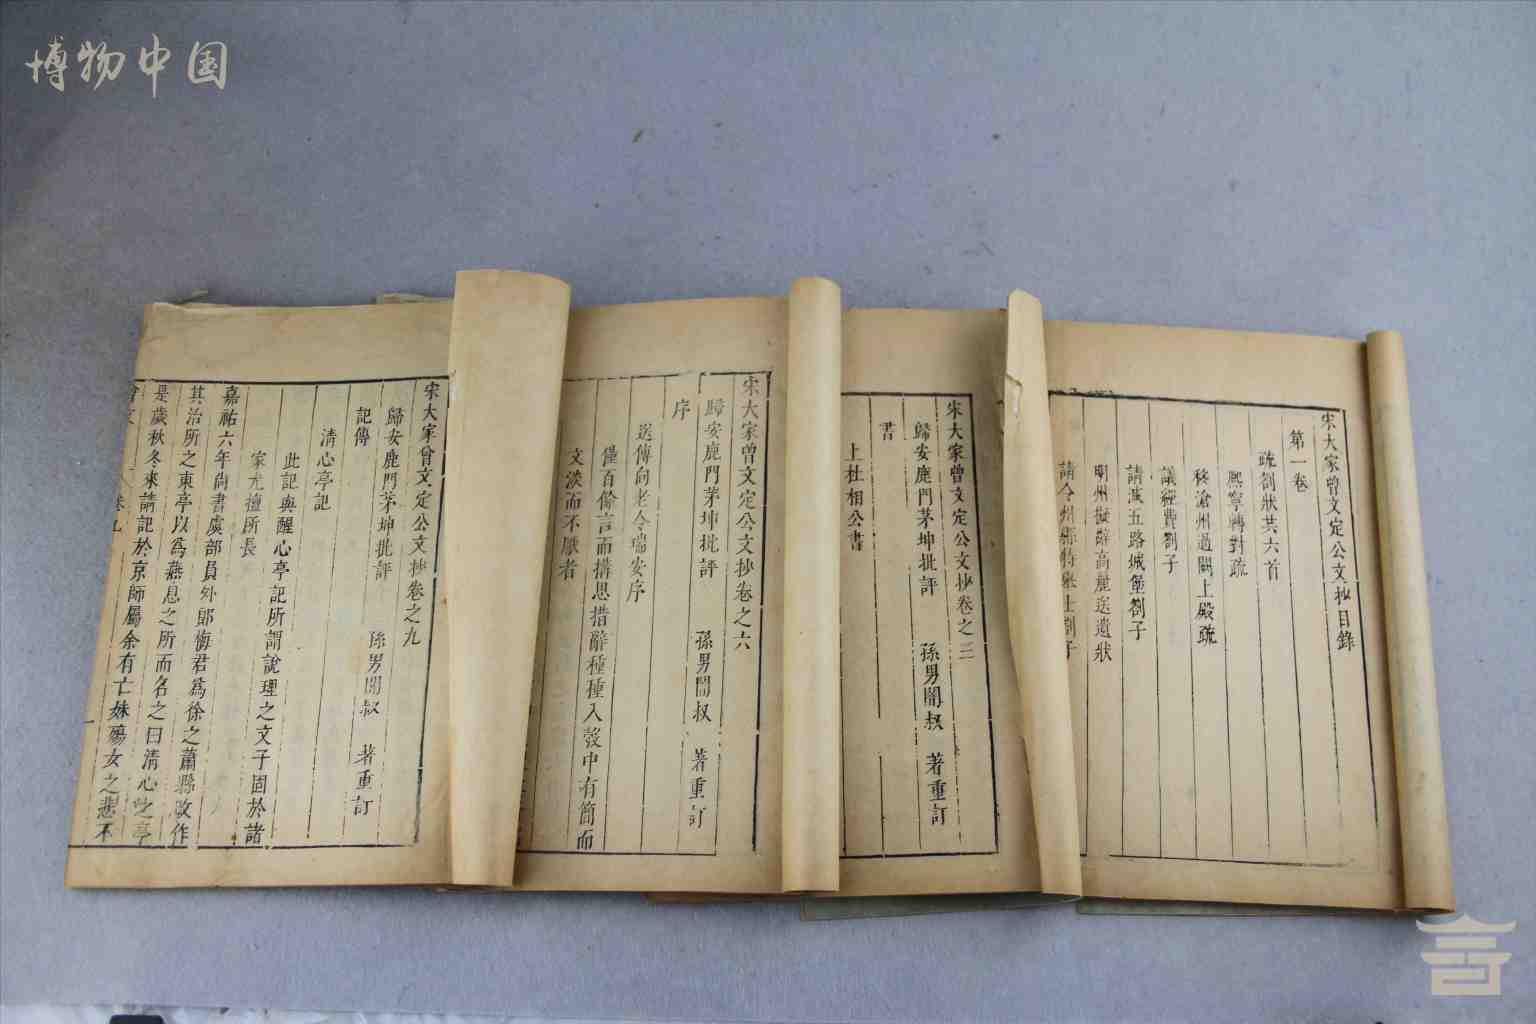 博物中国
宋大家曾文定公文抄目錄
第一卷
疏劄狀共六首
熙寧轉對疏
移滄州過闕上殿疏
議經費劄子
請減五路城堡劄子
明州擬辭高麗送遺狀
請令州縣特舉士劄子
宋大家曾文定公文抄卷之三
歸安鹿門茅坤批評 孫男闇叔 著重訂
書
上杜相公書
宋大家曾文定公文抄卷之六
歸安鹿門茅坤批評 孫男闇叔 著重訂
序
送傅向老令瑞安序
僅百餘言而搆思措辭種種入彀中有簡而
文淡而不厭者
宋大家曾文定公文抄卷之九
歸安鹿門茅坤批評 孫男闇叔 著重訂
記傳
清心亭記
此記與醒心亭記所謂說理之文子固於諸
家尤擅所長
嘉祐六年尚書虞部員外郎梅君為徐之蕭縣改作
其治所之東亭以為燕息之所而名之曰清心之亭
是歲秋冬來請記於京師屬余有亡妹殤女之悲不
卷九